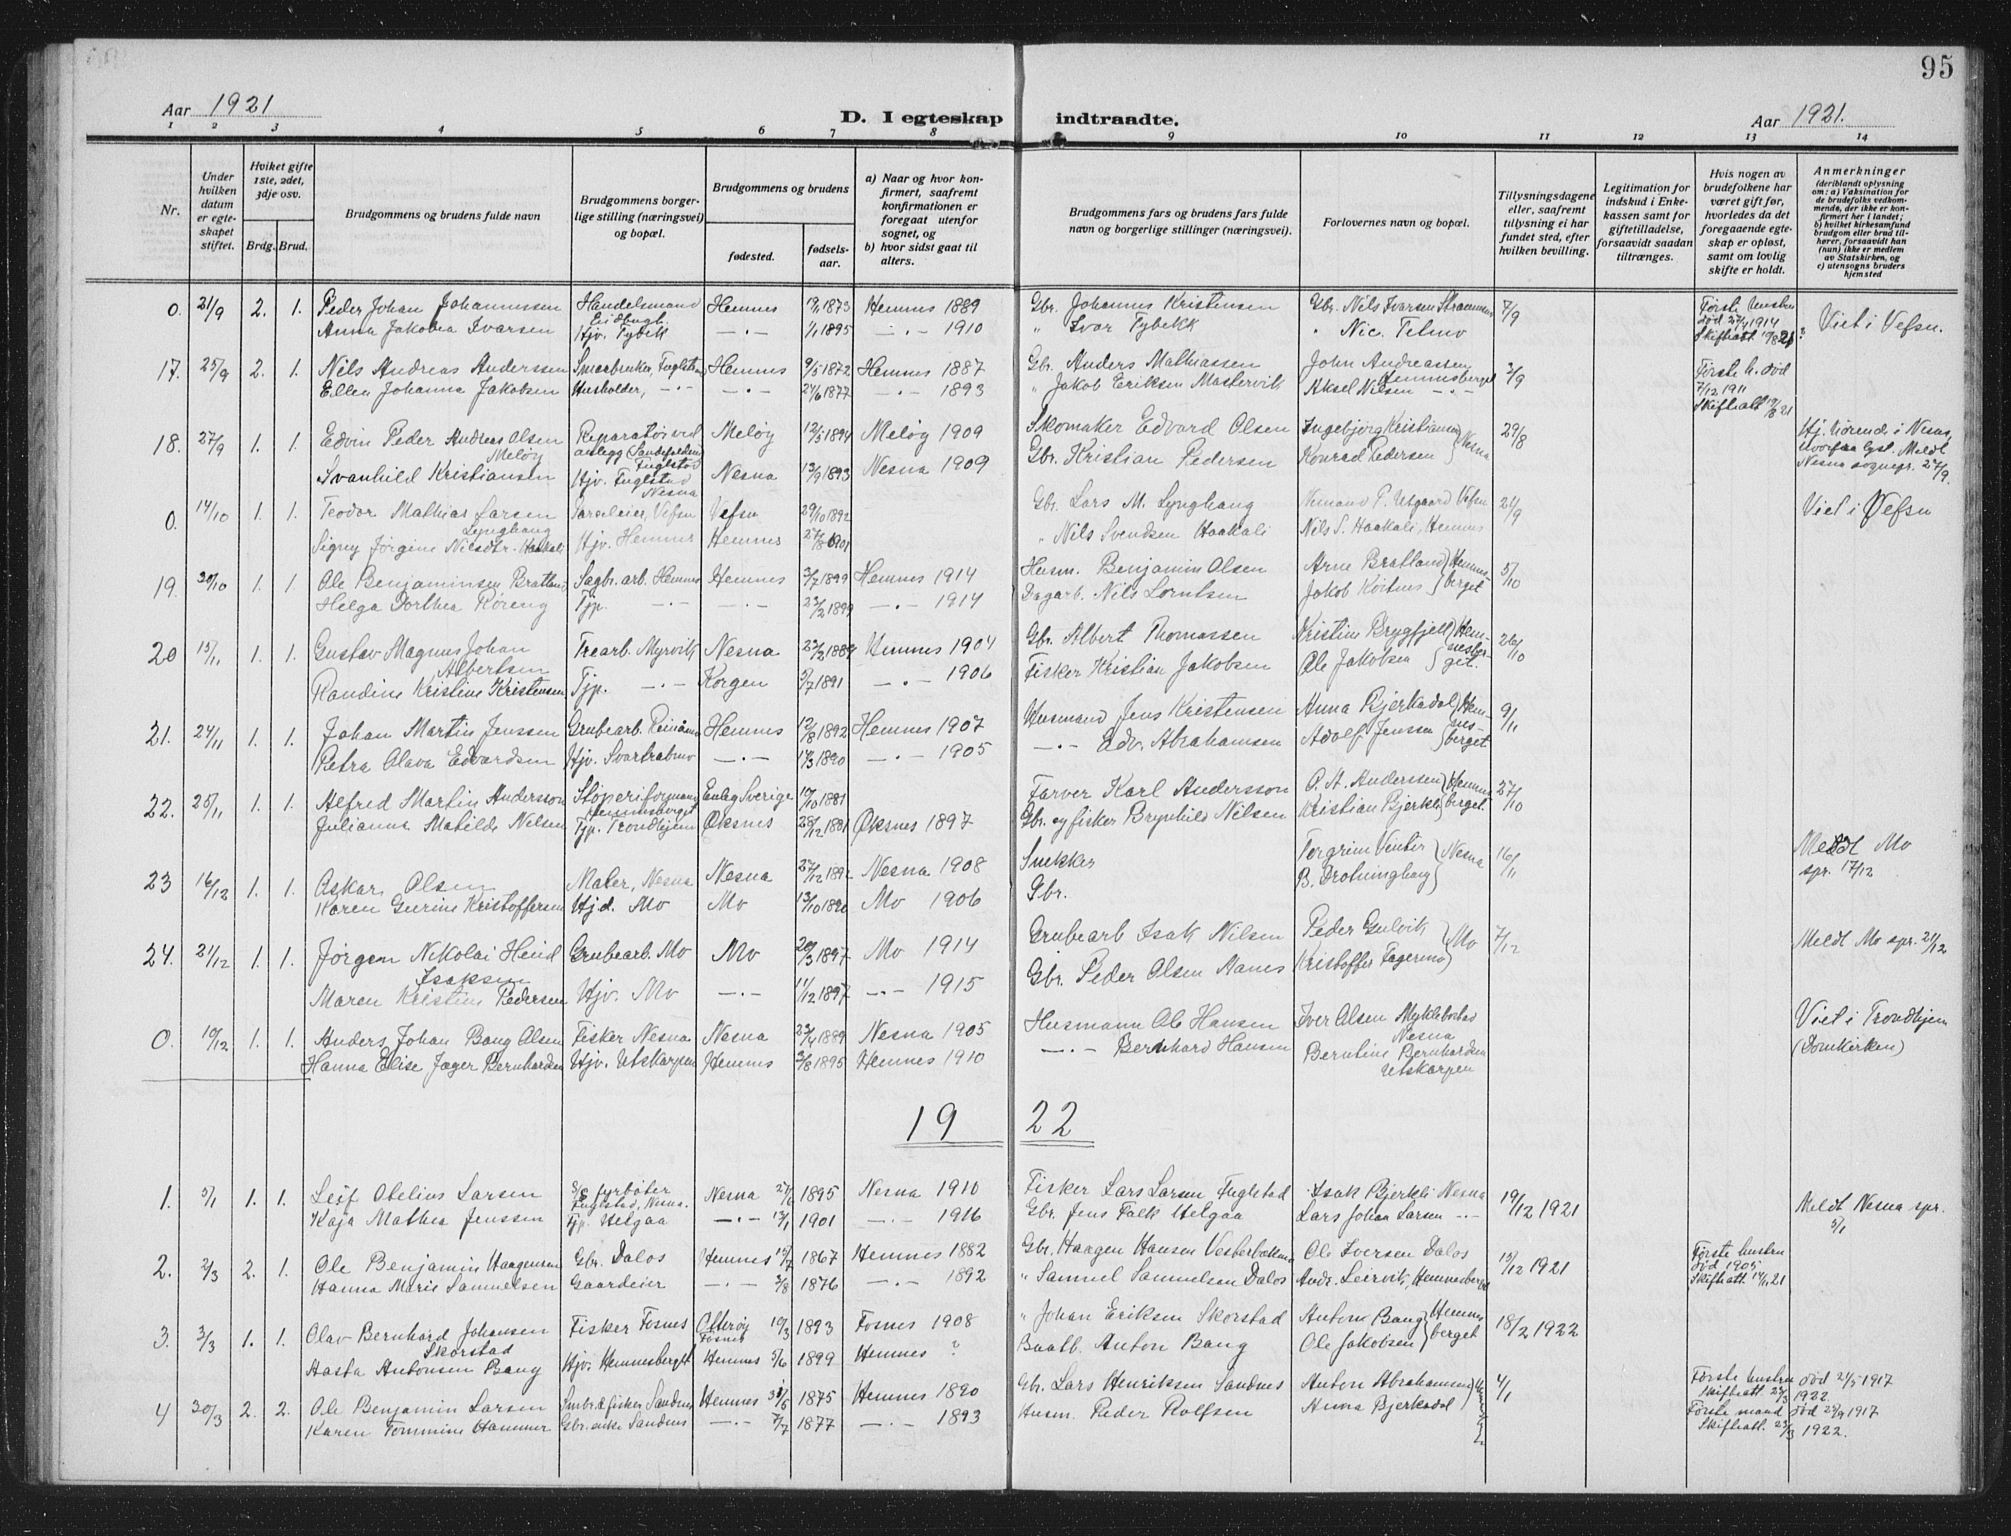 95
Aar 1921
D. I egteskap indtraadte.
Aar 1921.
1 2 3 4 5 6 7 8 9 10 11 12 13 14
Nr.
Under hvilken datum er egteskapet stiftet.
Hviket gifte 1ste, 2det, 3dje osv.
Brdg. Brud.
Brudgommens og brudens fulde navn
Brudgommens borgerlige stilling (næringsvei) og bopæl.
Brudgommens og brudens
fødested.
fødselsaar.
a) Naar og hvor konfirmert, saafremt konfirmationen er foregaat utenfor sognet, og
b) hvor sidst gaat til alters.
Brudgommens fars og brudens fars fulde navn og borgerlige stillinger (næringsvei).
Forlovernes navn og bopæl.
Tillysningsdagene eller, saafremt tillysning ei har fundet sted, efter hvilken bevilling.
Legitimation for indskud i Enkekassen samt for giftetilladelse, forsaavidt saadan tiltrænges.
Hvis nogen av brudefolkene har været gift før, hvorledes da det foregaaende egteskap er opløst, samt om lovlig skifte er holdt.
Anmerkninger
(deriblandt oplysning om: a) Vaksination for de brudefolks vedkommende, der ikke er konfirmert her i landet; b) hvilket kirkesamfund brudgom eller brud tilhører, forsaavidt han (hun) ikke er medlem av Statskirken, og c) utensogns bruders hjemsted
0. 21/9 2. 1. Peder Johan Johannessen Handelsmand Hemnes 1873 Hemnes 1889 Gbr. Johannes Kristensen Gbr. Nils Ivarsen 7/9 Første hustru død 1914 Skifteatt. Viet i Vefsn.
Anna Jakobea Ivarsen Hjv. Tybekk —.— 1/1 1895 —.— 1910 " Ivar Tybekk " Nic. Telmo
17. 25/9 2. 1. Nils Andreas Anderssen Smaabruker, Fuglstad Hemnes 9/5 1872 Hemnes 1887 Gbr. Anders Mathiassen John Andreassen Hemnesberget 3/9 Første h. død 7/12 1911 Skifteatt 21
Ellen Johanna Jakobsen Husholder, —.— —.— 24/6 1877 —.— 1893 " Jakob Eriksen Mastervik Aksel Nilsen —.—
18. 27/9 1. 1. Edvin Peder Andreas Olsen Meløy Reparatør ved Meløy 12/5 1894 Meløy 1909 Skomaker Edvard Olsen Ingebjørg Kristiansen Nesna 29/8 Meldt Nesna sognepr. 27/9.
Svanhild Kristiansen Hjv. Fuglstad Nesna Nesna 13/9 1893 Nesna 1909 Gbr. Kristian Pedersen Konrad Pedersen
0. 14/10 1. 1. Teodor Mathias Larsen Lynghaug Vefsn Vefsn 29/10 1892 Gbr. Lars M. Lynghaug P. Utgaard Vefsn 21/9 Viet i Vefsn
Signy Jørgine Nilsdtr. Haakali Hjv. Hemnes Hemnes 1901 " Nils Svendsen Haakali Nils S. Haakali, Hemnes
19. 30/10 1. 1. Ole Benjaminsen Bratland Sagbr.arb. Hemnes Hemnes 3/7 1899 Hemnes 1914 Husm. Benjamin Olsen Arne Bratland Hemnesberget 5/10
Helga Dorthea Røreng Tjp. —.— —.— 23/2 1899 —.— 1914 Dagarb. Nils Lorntsen Jakob
20 15/11 1. 1. Gustav Magnus Johan Albertsen Trearb. Myrvik Nesna 1889 Hemnes 1904 Gbr. Albert Thomassen Kristine Brygfjell Hemnesberget. 26/10
Randine Kristine Kristensen Tjp. —.— Korgen 5/7 1891 —.— 1906 Fisker Kristian Jakobsen Ole Jakobsen
21. 24/11 1. 1. Johan Martin Jenssen Grubearb. Hemnes 12/8 1892 Hemnes 1907 Husmand Jens Kristensen Anna Bjerkadal Hemnesberget 9/11
Petra Olava Edvardsen Hjv. Svartvatnmo —.— 14/3 1890 —.— 1905 —.— Edv. Abrahamsen Adolf Jenssen
22. 25/11 1. 1. Alfred Martin Andersson Støperiformand Hemnesberget Sverige 1881 Farver Karl Andersson O. A. Anderssen Hemnesberget 27/10
Julianna Matilde Nilsen Tjp. Trondhjem Øksnes 28/12 1881 Øksnes 1897 Gbr. og fisker Brynhild Nilsen Kristian Bjerkli
23 16/12 1. 1. Oskar Olsen Maler, Nesna Nesna 27/12 1892 Nesna 1908 Snekker Torgrim Vinter Nesna 16/11 Meldt Mo spr. 17/12
Karen Gurine Kristoffersen Hjd. Mo Mo 13/10 1890 Mo 1906 Gbr. B. Drotningberg
24. 21/12 1. 1. Jørgen Nikolai Heid Isaksen Grubearb. Mo Mo 20/3 1897 Mo 1914 Grubearb Isak Nilsen Peder Gulvik Mo 7/12 Meldt Mo spr. 21/12
Maren Kristine Pedersen Hjv. Mo —.— 11/12 1897 —.— 1915 Gbr. Peder Olsen Aanes Kristoffer Fagermo
0. 10/12 1. 1. Anders Johan Bang Olsen Fisker Nesna Nesna 23/4 1889 Nesna 1905 Husmann Ole Hansen Iver Olsen Myklebostad Nesna Viet i Trondhjem
Hanna Elise Jæger Bernhardsen Hjv. Utskarpen Hemnes 3/8 1895 Hemnes 1910 —.— Bernhard Hansen Berntine Bernhardsen Utskarpen (Domkirken)
19 22
1. 5/1 1. 1. Leif Otelius Larsen D/S fyrbøter Fuglstad, Nesna. Nesna 27/6 1895 Nesna 1910 Fisker Lars Larsen Fuglstad Isak Bjerkli Nesna 19/12 1921 Meldt Nesna spr. 5/1
Kaja Mathea Jenssen Tjp. Helgaa —.— 13/1 1901 —.— 1916 Gbr. Jens Falk Helgaa Lars Johan Larsen —.—
2. 2/3 2. 1. Ole Benjamin Haagensen Gbr. Dalos Hemnes 19/7 1867 Hemnes 1882 Gbr. Haagen Hansen Ole Iversen Dalos 15/12 1921 Første hustru død 1905 Skifteatt. 14/1 21
Hanna Marie Samuelsen Gaardeier —.— 3/8 1876 —.— 1892 " Samuel Samuelsen Dalos Andr. Leirvik, Hemnesberget
3. 3/3 1. 1. Olav Bernhard Johansen Skorstad Fisker Fosnes Otterøy Fosnes 10/3 1893 Fosnes 1908 " Johan Eriksen Skorstad Anton Bang Hemnesberget 18/2 1922
Aasta Antonsen Bang Hjv. Hemnesberget Hemnes 5/6 1899 Hemnes ? Baatb. Anton Bang Ole Jakobsen
4 30/3 2. 2. Ole Benjamin Larsen Smbr. & fisker Sandnes Hemnes 31/5 1875 Hemnes 1890 Gbr. Lars Henriksen Sandnes Anton Abrahamsen 4/1 Første hustru død 21/5 1917 Skifteatt. 23/3 1922.
Karen Tommine Hammer Gbr.enke Sandnes —.— 7/7 1877 —.— 1893 Husm. Peder Rolfsen Anna Bjerkadal Første mand død 1917 Skifteatt. 23/3 1922.